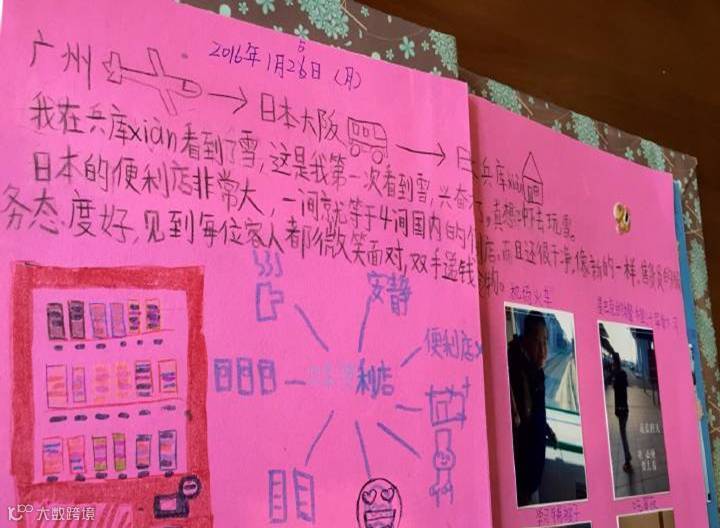 2016年1月26日（月）
5
广州 → 日本大阪 → 日 兵库xiàn
我在兵库xiàn看到了雪，这是我第一次看到雪，兴奋 ，真想冲下去玩雪。
日本的便利店非常大，一间就等于4间国内的便利店。而且还很干净，像新的一样，售货员的服
务态度好，见到每位客人都微笑面对，双手递钱 物。
安静
便利店
利店
大数跨境